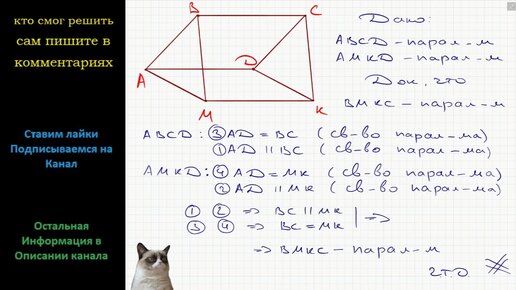 кто смог решить
сам пишите в
комментариях
Ставим лайки
Подписываемся на
Канал
Остальная
Информация в
Описании канала
B
C
A
D
M
K
Дано:
ABCD – парал-м
AMKD – парал-м
Док, что
BMKC – парал-м
ABCD: ③ AD = BC (св-во парал-ма)
① AD || BC (св-во парал-ма)
AMKD: ④ AD = MK (св-во парал-ма)
② AD || MK (св-во парал-ма)
① ② => BC || MK | =>
③ ④ => BC = MK
=> BMKC – парал-м
ч.т.д